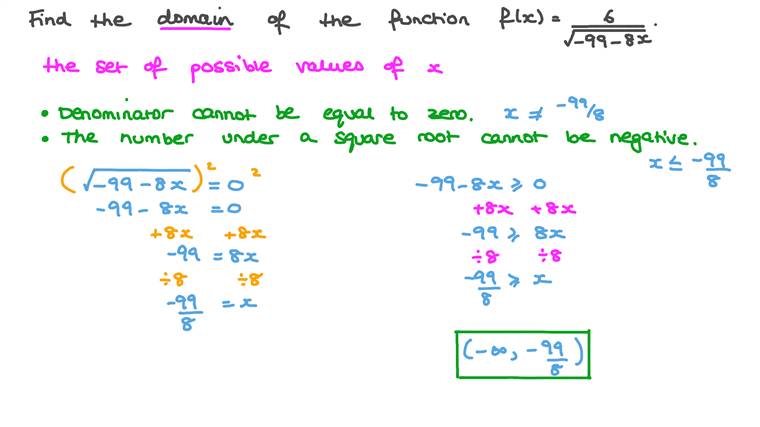 Find the domain of the function f(x) = 6/√(-99-8x).
the set of possible values of x
• Denominator cannot be equal to zero. x ≠ -99/8
• The number under a square root cannot be negative.
x ≤ -99/8
(√(-99-8x))² = 0²
-99-8x = 0
+8x +8x
-99 = 8x
÷8 ÷8
-99/8 = x
-99-8x ≥ 0
+8x +8x
-99 ≥ 8x
÷8 ÷8
-99/8 ≥ x
(-∞, -99/8)